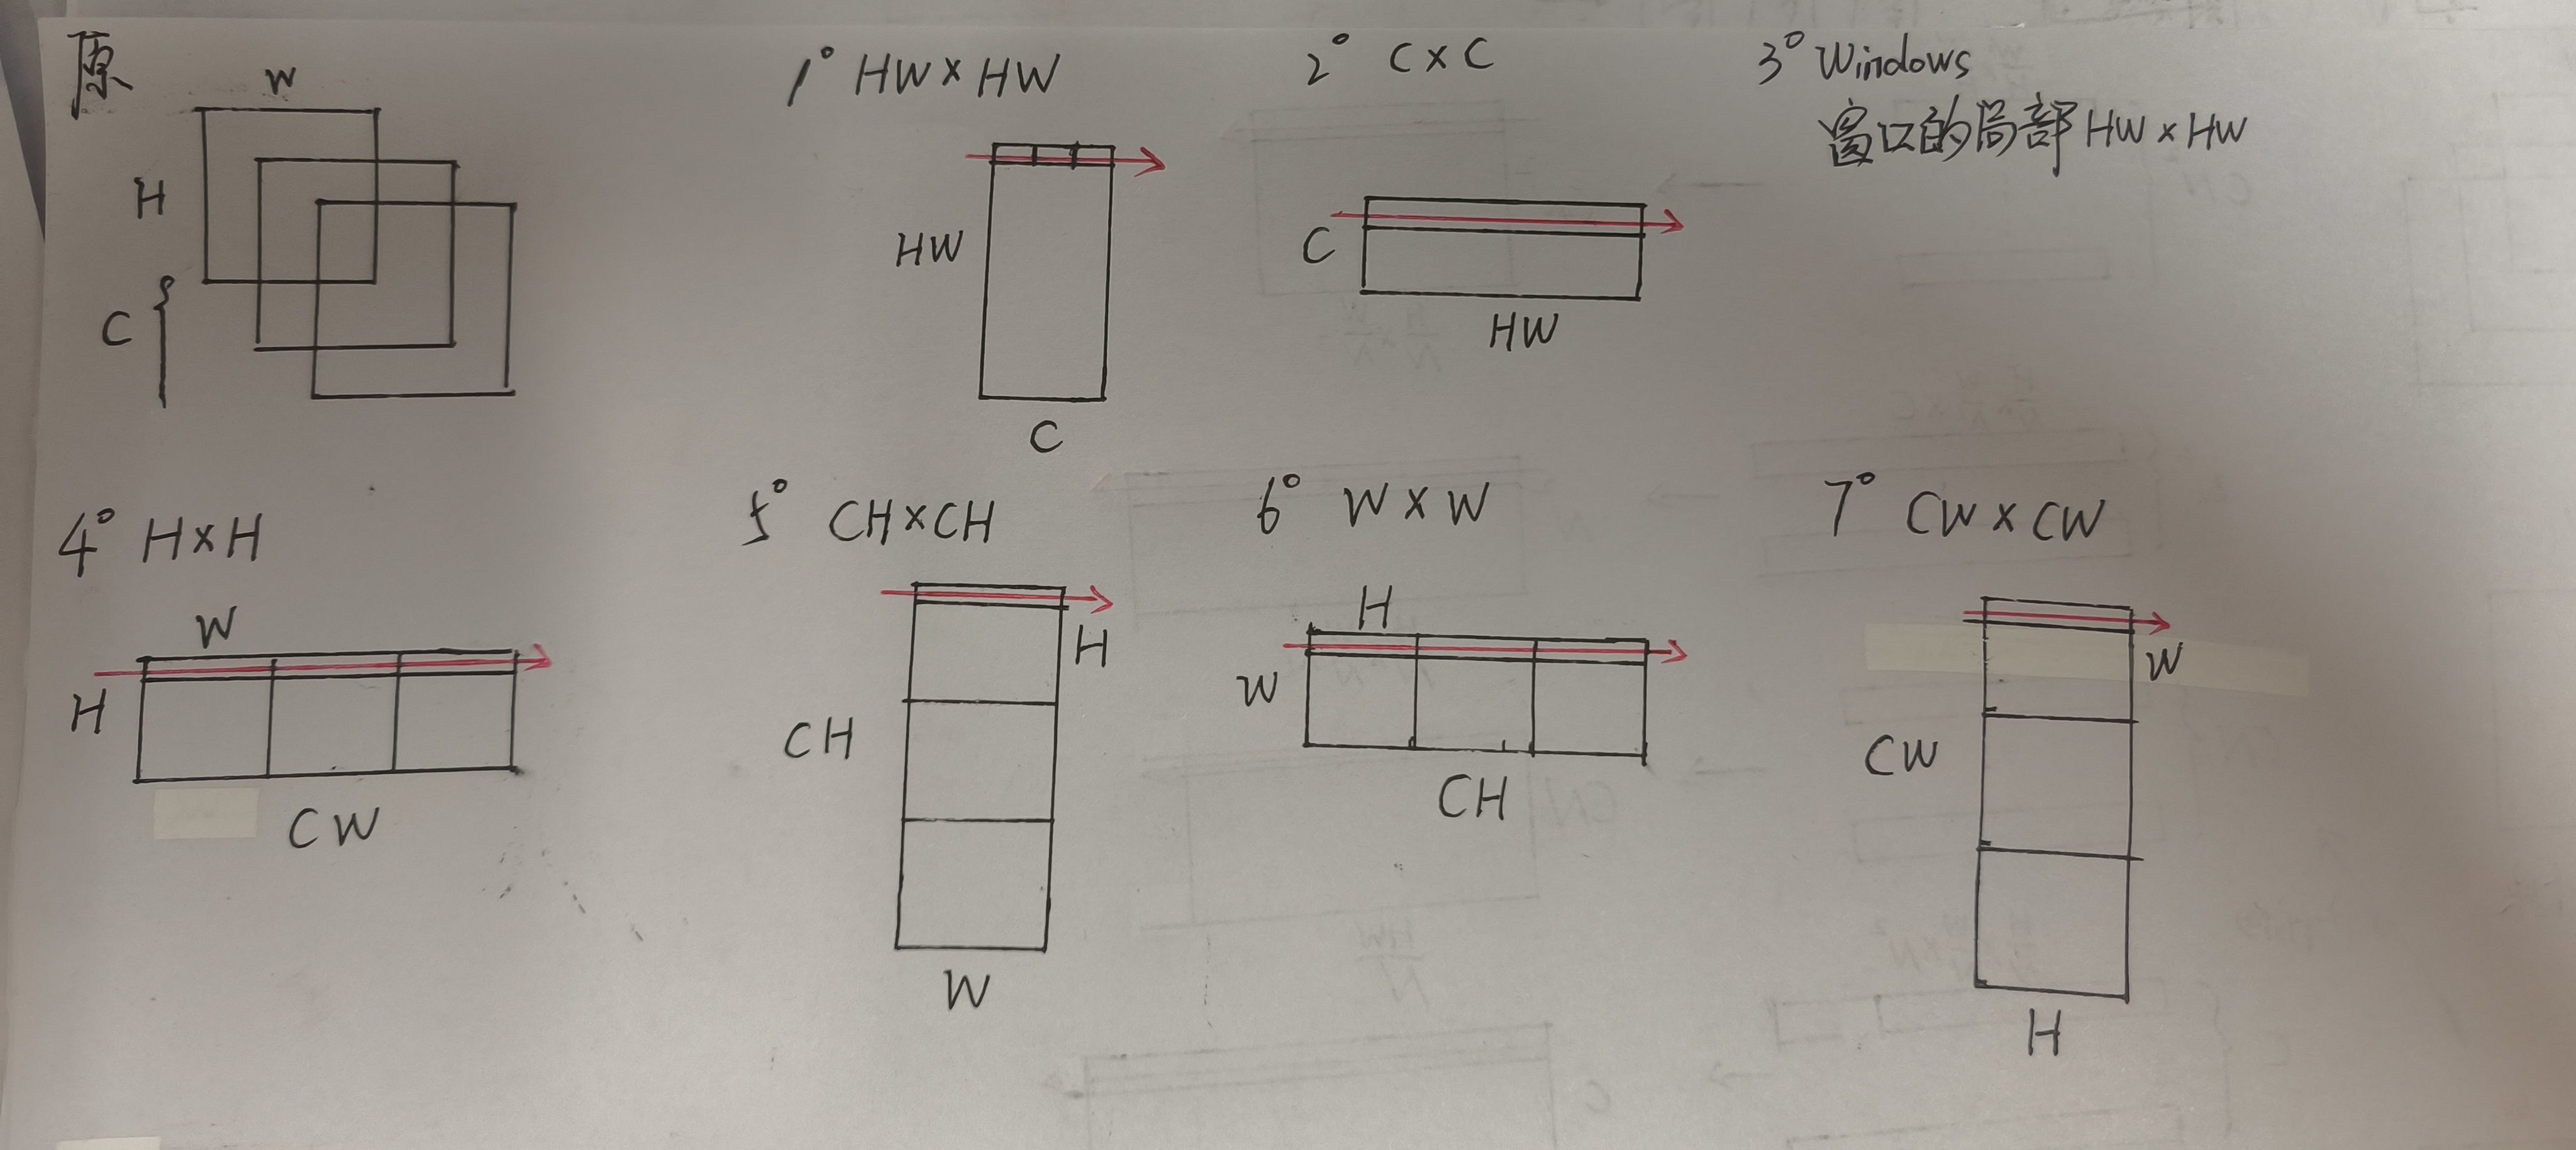 原
W
H
C
1° HW×HW
HW
C
2° C×C
C
HW
3° Windows
窗口的局部HW×HW
4° H×H
W
H
CW
5° CH×CH
H
CH
W
6° W×W
H
W
CH
7° CW×CW
W
CW
H